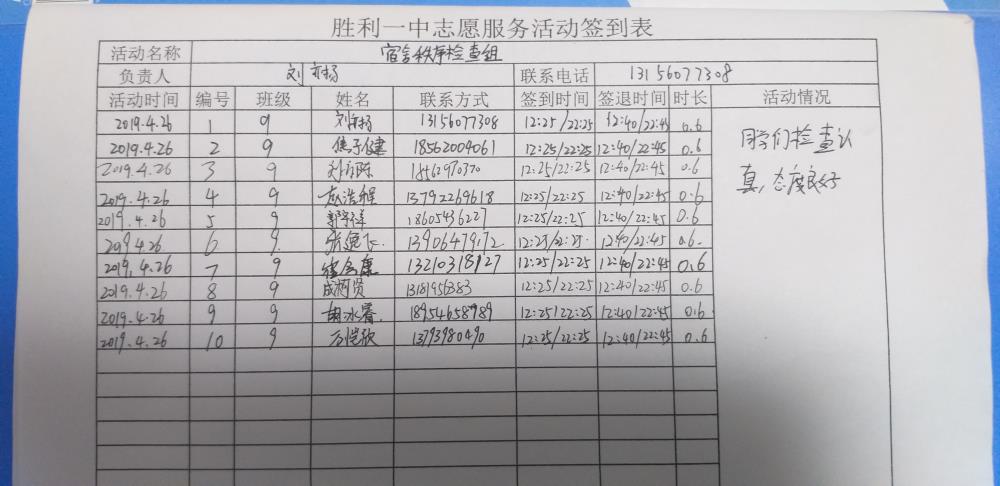 胜利一中志愿服务活动签到表
活动名称 宿舍秩序检查组
负责人 刘 扬 联系电话 13156077308
活动时间 编号 班级 姓名 联系方式 签到时间 签退时间 时长 活动情况
2019.4.26 1 9 刘 扬 13156077308 12:25/22:25 12:40/22:45 0.6
2019.4.26 2 9 焦子健 18562004061 12:25/22:25 12:40/22:45 0.6
2019.4.26 3 9 12:25/22:25 12:40/22:45 0.6
2019.4.26 4 9 赵浩程 13792269618 12:25/22:25 12:40/22:45 0.6
2019.4.26 5 9 郭宇祥 18605436227 12:25/22:25 12:40/22:45 0.6
2019 4.26 6 9. 13906479172 12:25/22:25. 12:40/22:45 0.6.
2019.4.26 7 9 13210318127 12:25/22:25 12:40/22:45 0.6
2019.4.26 8 9 成柯贤 13181956383 12:25/22:25 12:40/22:45 0.6
2019.4.26 9 9 18954658989 12:25/22:25 12:40/22:45 0.6
2019.4.26 10 9 13793980490 12:25/22:25 12:40/22:45 0.6
同学们检查认
真，态度良好